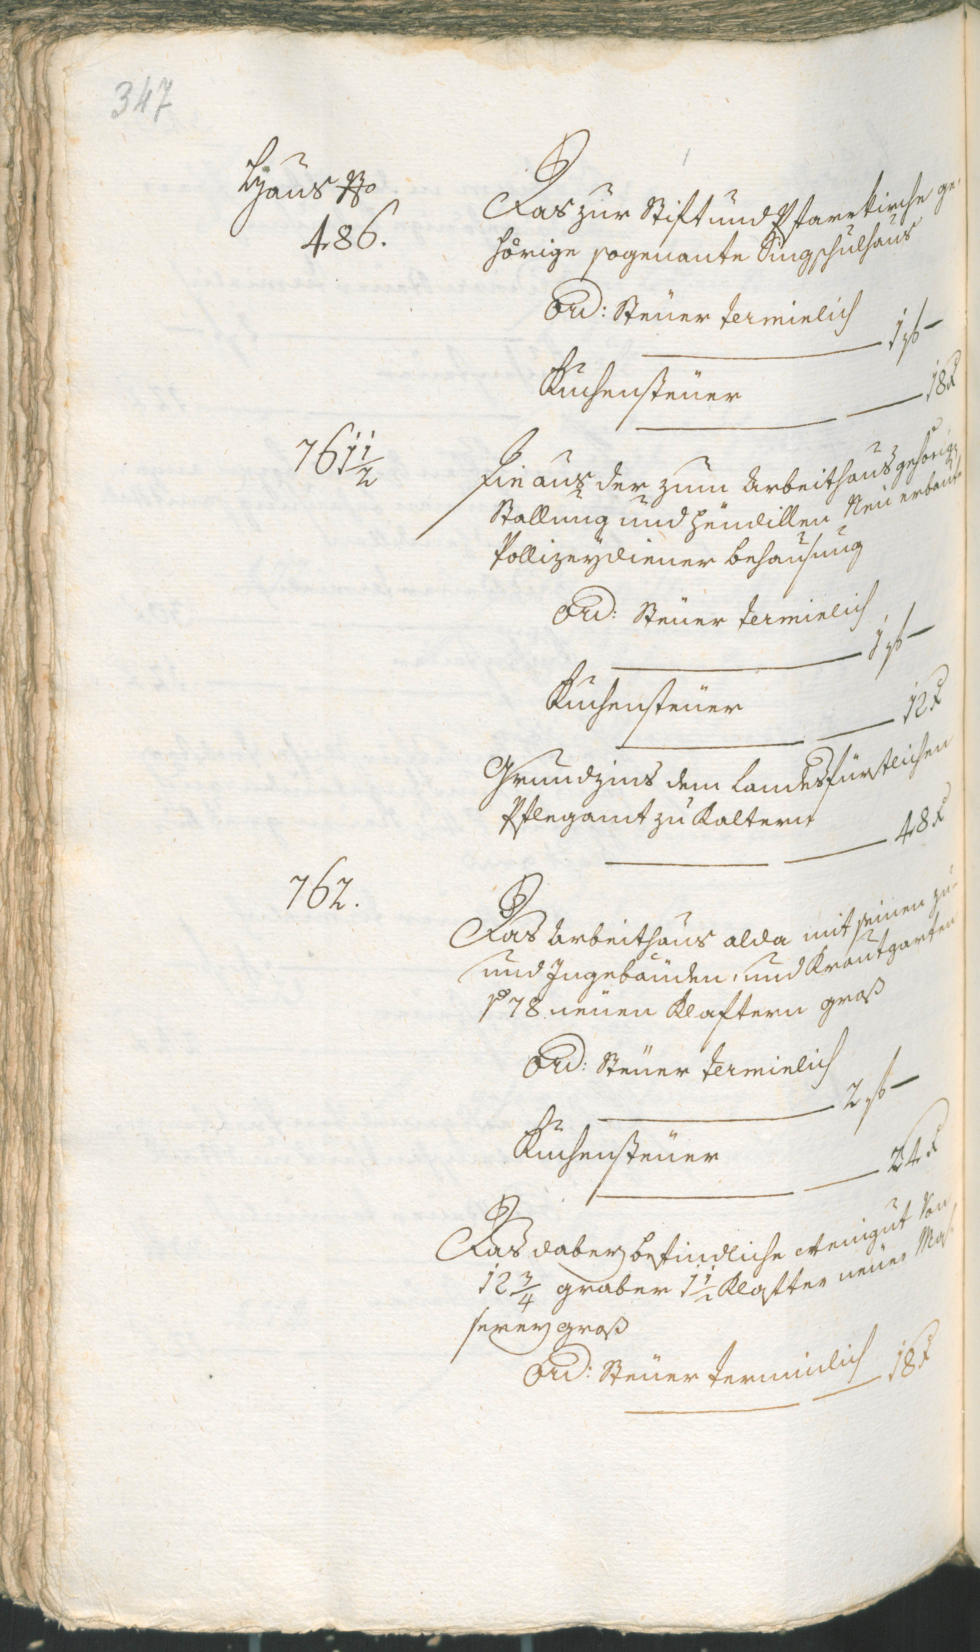 347
Haus No
486.
Das zur Stift und Pfarrkirche ge
hörige sogenante Singschulhaus
Ord: Steuer Terminlich
1 f —
Kuchensteuer
18 x
761 1/2
Die aus der zum Arbeithaus gehörig
Stallung und Neu erbaut
Pollizeydiener Behausung
Ord: Steuer Terminlich
1 f —
Kuchensteuer
12 x
Grundzins dem Landesfürstlichen
Pflegamt zu Kaltern
48 x
762.
Das Arbeithaus alda mit seinen zu-
und Ingebäuden, und Krautgarten
pr 78 neuen Klaftern groß
Ord: Steuer Terminlich
2 f —
Kuchensteuer
24 x
Das dabey befindliche Weingut von
12 3/4 graber 1 1/2 Klafter neuer Mas
serey groß
Ord: Steuer Terminlich 18 x